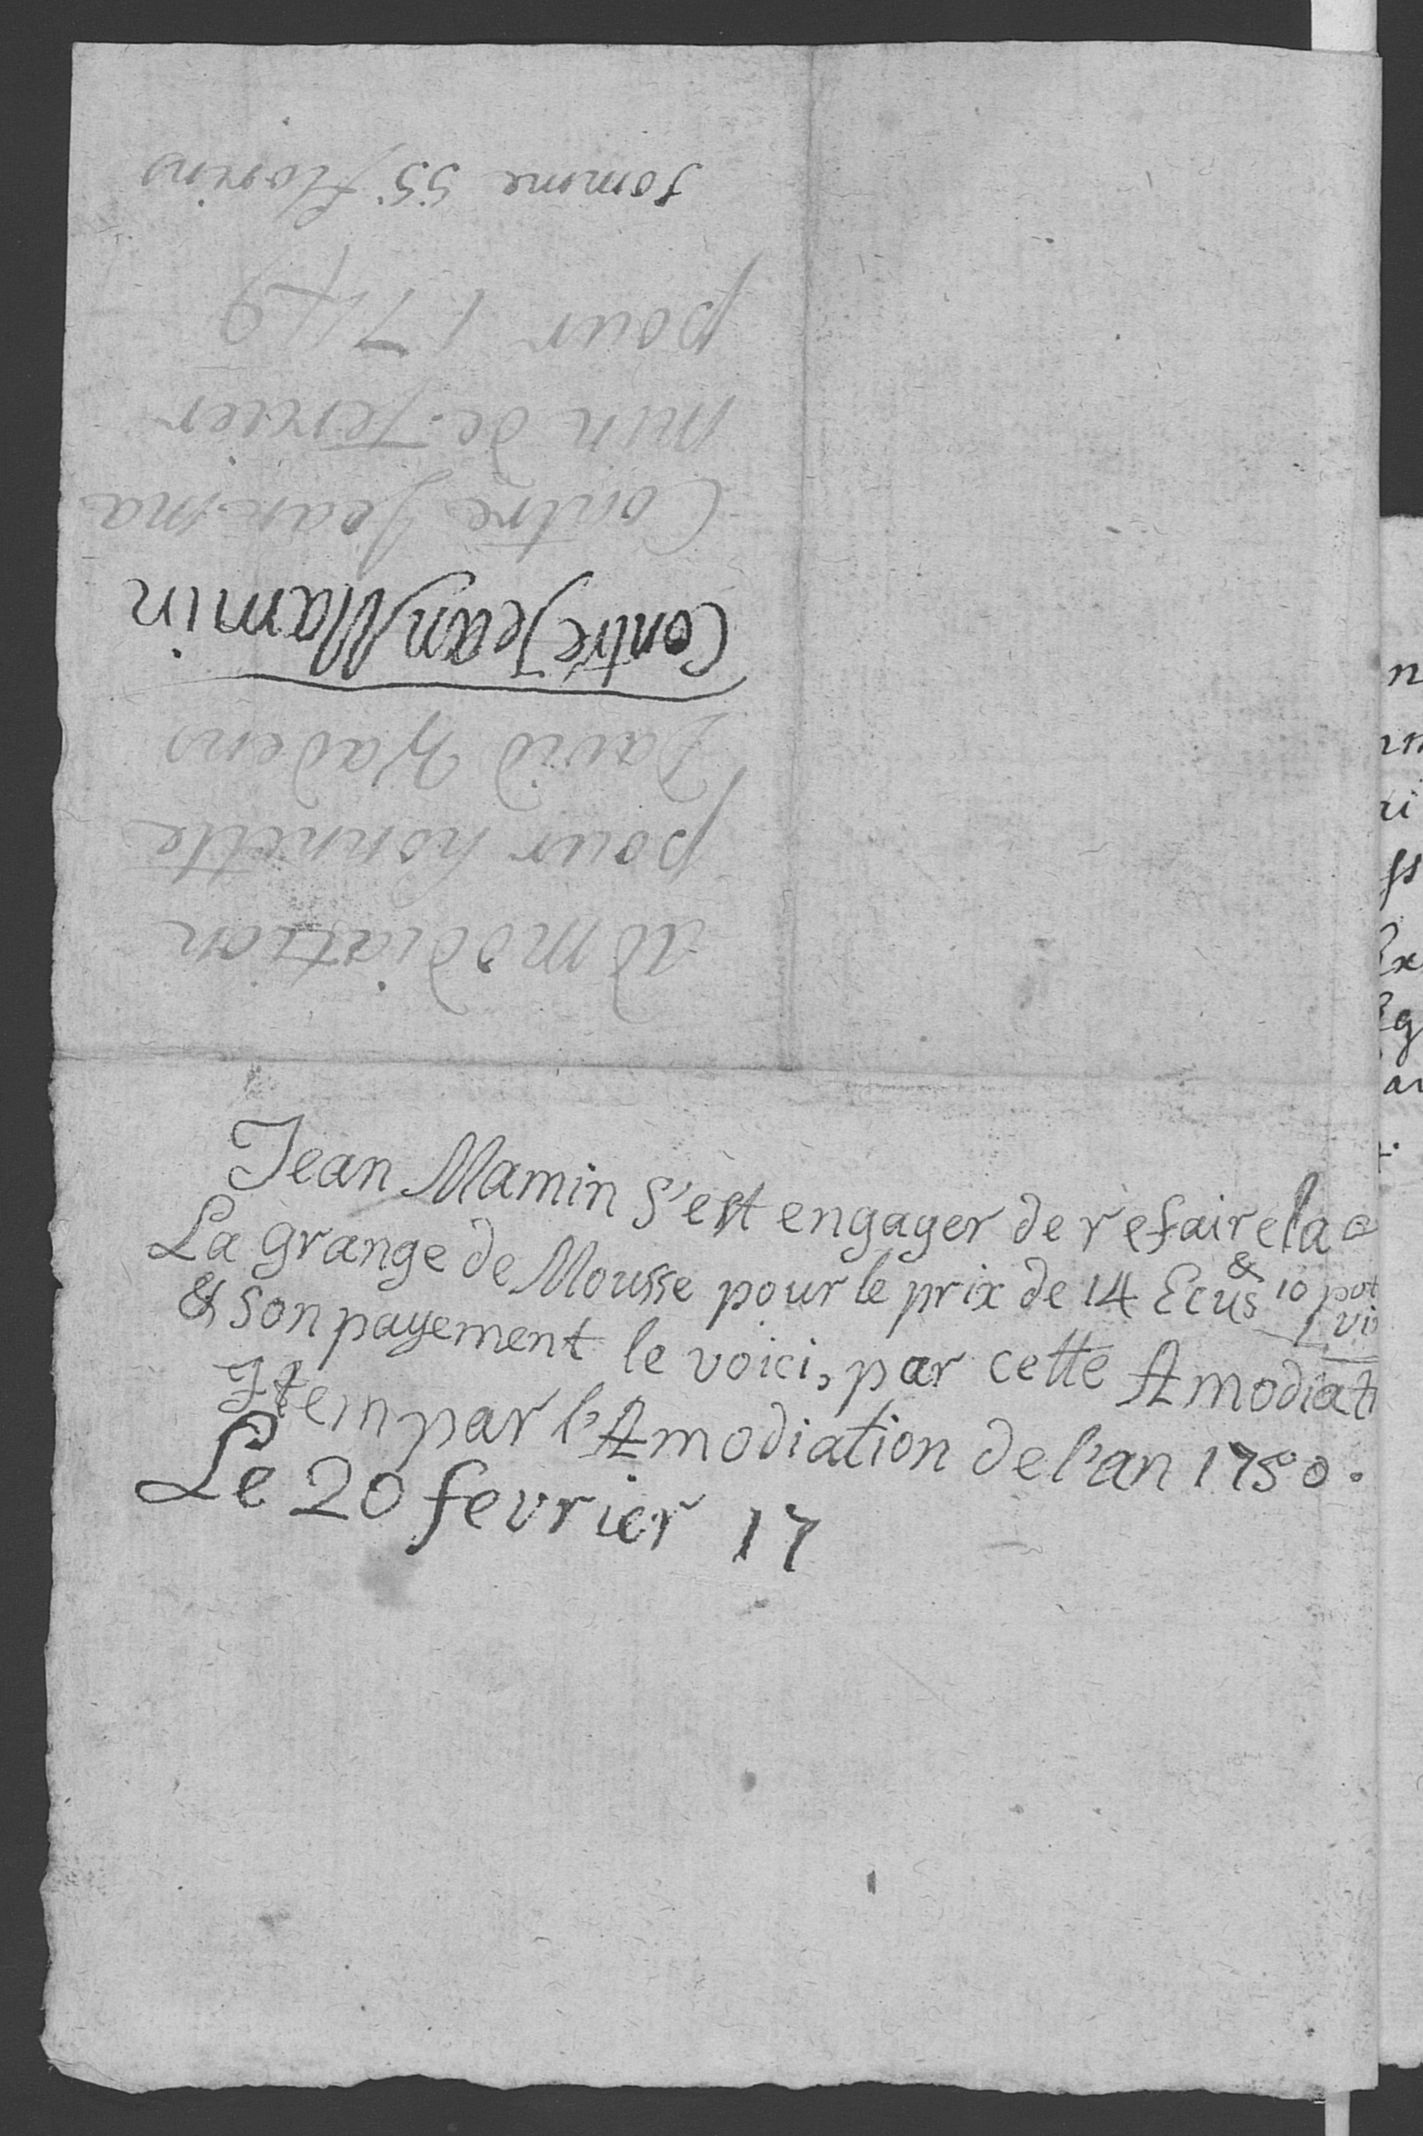 Amodiation
pour honnette
David Hadens
Contre Jean Mamin
Contre Jean ma
min de
pour 1749
somme 55 florins
Jean Mamin s'est engager de refaire la
La grange de Mousse pour le prix de 14 Ecus & 10 pot
vi
& son payement le voici, par cette Amodiati
Item par l'Amodiation de l'an 1750.
Le 20 fevrier 17